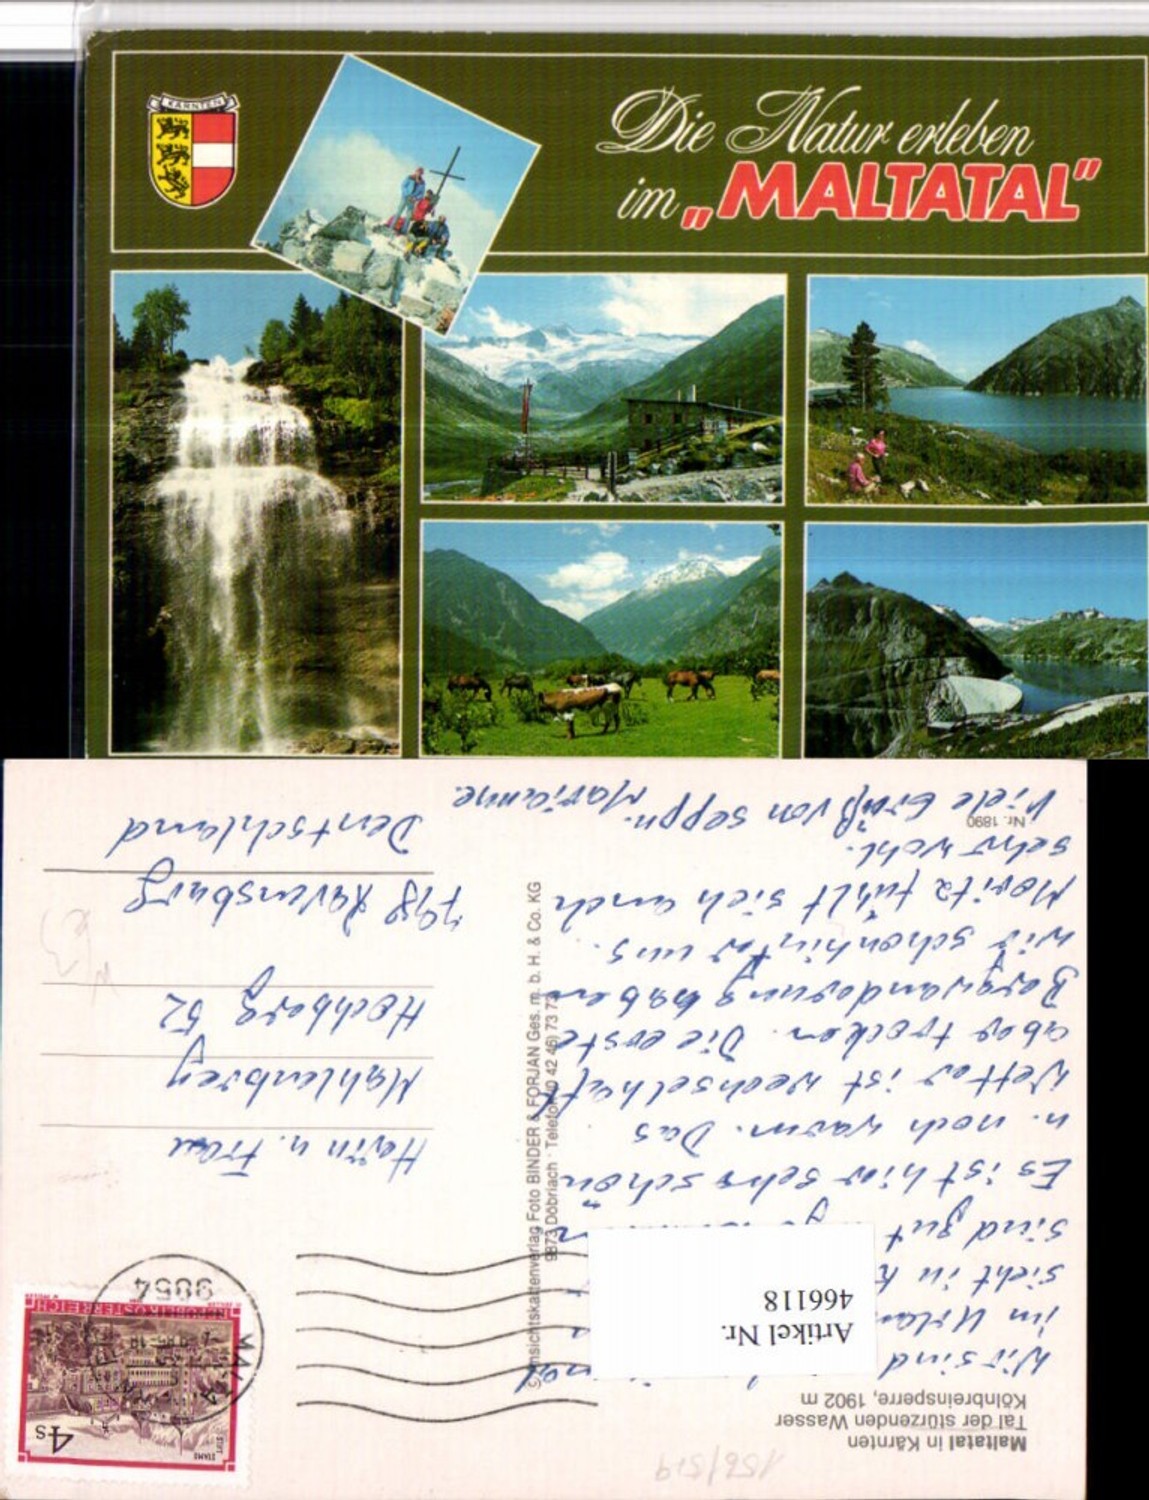 KÄRNTEN
Die Natur erleben
im „MALTATAL"
Maltatal in Kärnten
Tal der stürzenden Wasser
Kölnbreinsperre, 1902 m
Wir sind
im Urla
sicht in K
sind gut
Es ist hier sehr schön
u. noch warm. Das
Wetter ist wechselhaft
aber trocken. Die erste
Bergwanderung haben
wir schon hinter uns.
Moritz fühlt sich auch
sehr wohl.
Viele Grüß von Sepp u.
Marianne.
Nr. 1890
Artikel Nr.
466118
Ansichtskartenverlag Foto BINDER & FORJAN Ges. m. b. H. & Co. KG
9873 Döbriach · Telefon (0 42 46) 73 73
4 S
STIFT
STAMS
REPUBLIK ÖSTERREICH
9854
MALTA
Herrn u. Frau
Mahlenbrey
Hochberg 52
798 Ravensburg
Deutschland
156/519